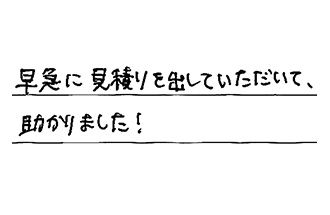 早急に見積りを出していただいて、
助かりました!